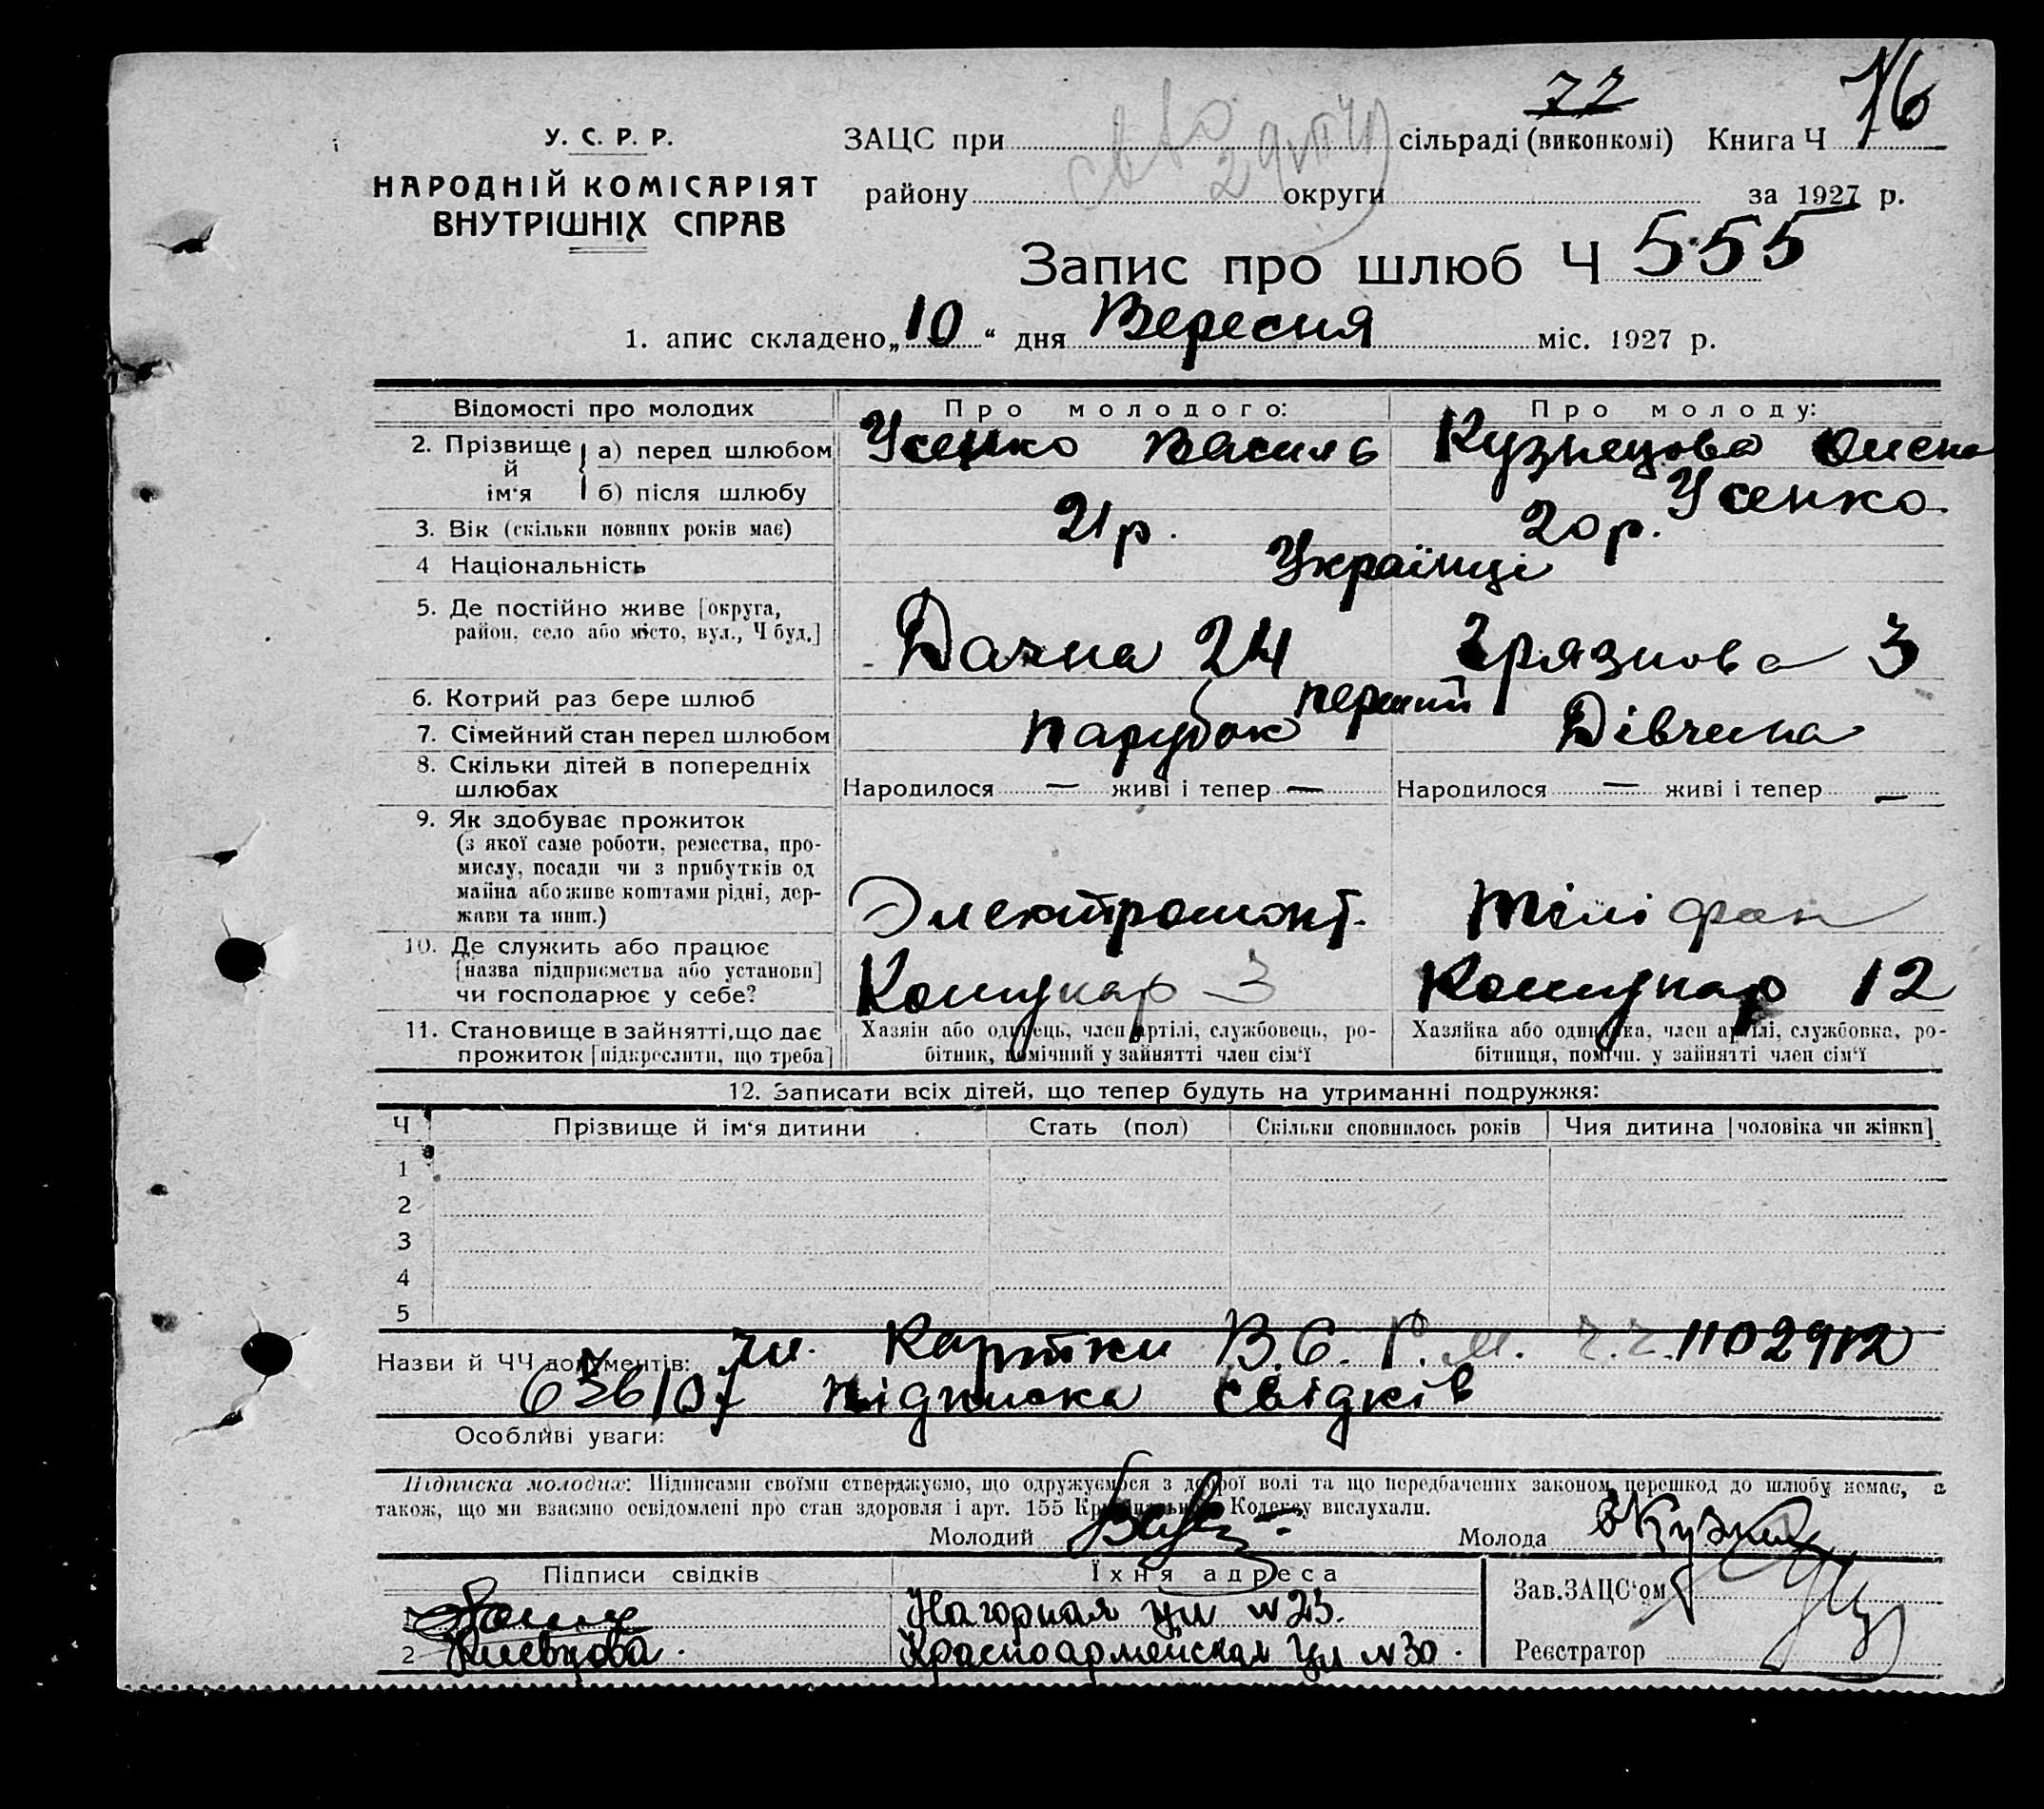 72
76
У. С. Р. Р.
НАРОДНІЙ КОМІСАРІЯТ
ВНУТРІШНІХ СПРАВ
ЗАЦС при сільраді (виконкомі) Книга Ч
району округи за 1927 р.
Запис про шлюб Ч 555
1. апис складено „10“ дня Вересня міс. 1927 р.
Відомості про молодих Про молодого: Про молоду:
2. Прізвище й ім‘я а) перед шлюбом Усенко Василь Кузнецова Олена
б) після шлюбу Усенко
3. Вік (скільки повних років має) 21 р. 20 р.
4 Національність Українці
5. Де постійно живе [округа,
район, село або місто, вул., Ч буд.] Дачна 24 Грязнова 3
6. Котрий раз бере шлюб перший
7. Сімейний стан перед шлюбом парубок Дівчина
8. Скільки дітей в попередніх
шлюбах Народилося — живі і тепер — Народилося — живі і тепер —
9. Як здобуває прожиток
(з якої саме роботи, ремества, про-
мислу, посади чи з прибутків од
майна або живе коштами рідні, дер-
жави та инш.) Электромонт. Тіліфон
10. Де служить або працює
[назва підприємства або установи]
чи господарює у себе? Комунар 3 Комунар 12
11. Становище в зайнятті, що дає
прожиток [підкреслити, що треба]
Хазяїн або одинець, член артілі, службовець, ро-
бітник, помічний у зайнятті член сім‘ї
Хазяйка або одиначка, член артілі, службовка, ро-
бітниця, помічн. у зайнятті член сім‘ї
12. Записати всіх дітей, що тепер будуть на утриманні подружжя:
Ч Прізвище й ім‘я дитини Стать (пол) Скільки сповнилось років Чия дитина [чоловіка чи жінки]
1
2
3
4
5
Назви й ЧЧ документів: чл. Картки В. С. Р. М. ч.ч. 1102912
підписка свідків
Особливі уваги:
Підписка молодих: Підписами своїми стверджуємо, що одружуємося з доброї волі та що передбачених законом перешкод до шлюбу немає, а
також, що ми взаємно освідомлені про стан здоровля і арт. 155 Кримінального Кодексу вислухали.
Молодий Молода
Підписи свідків Їхня адреса Зав. ЗАЦС‘ом
1 Нагорная ул № 23.
2 Красноармейская ул № 30. Реєстратор